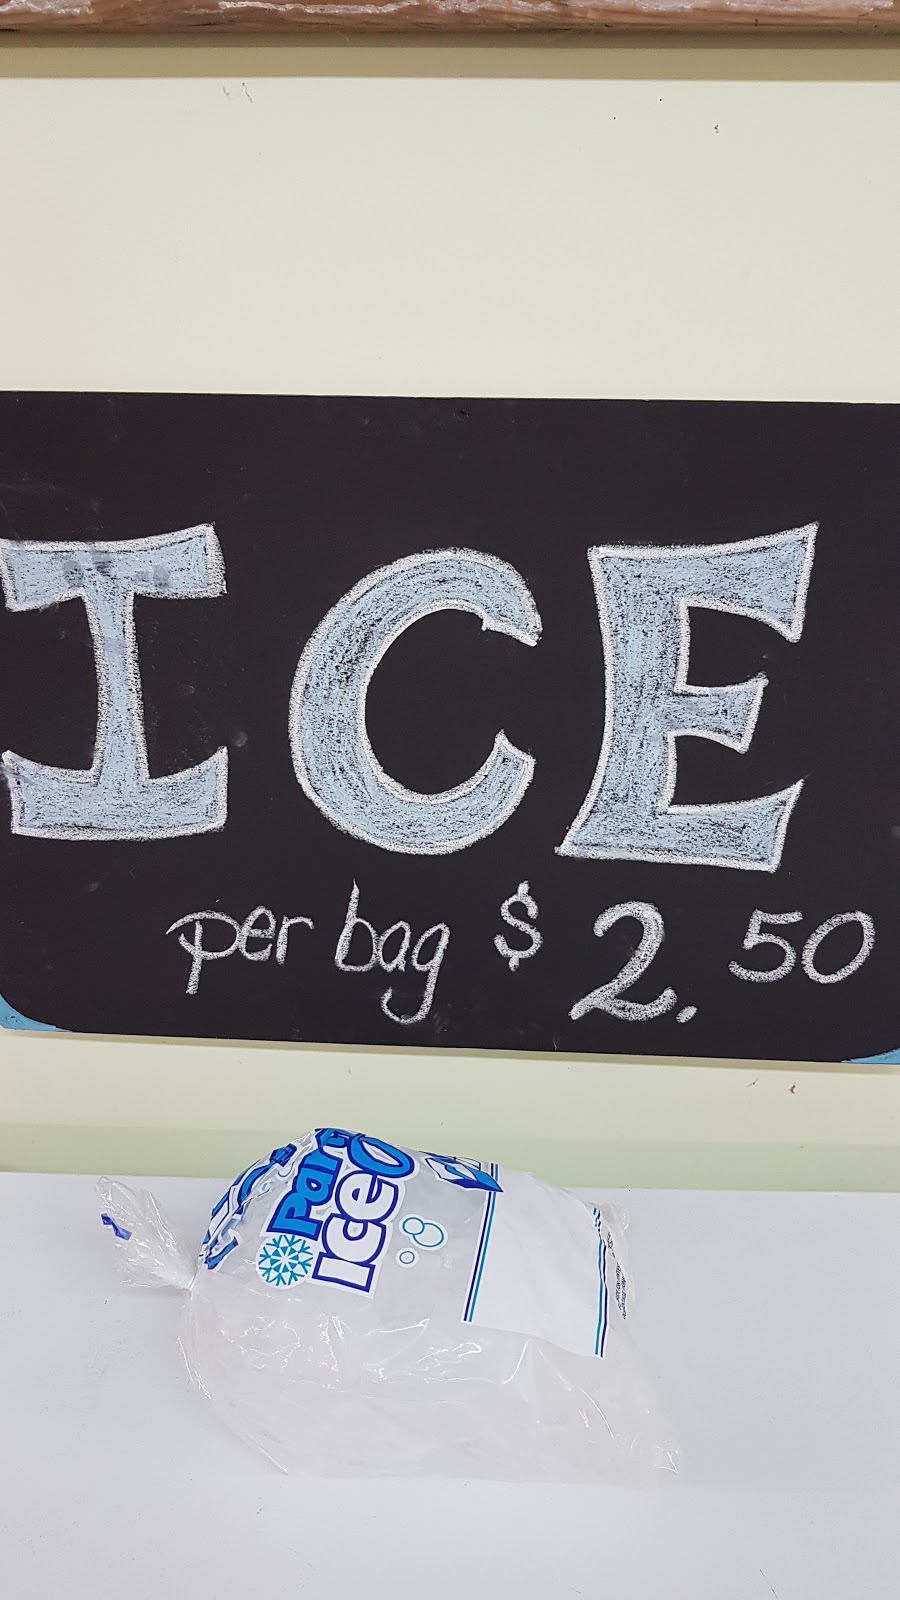 ICE
per bag $2.50
Ice